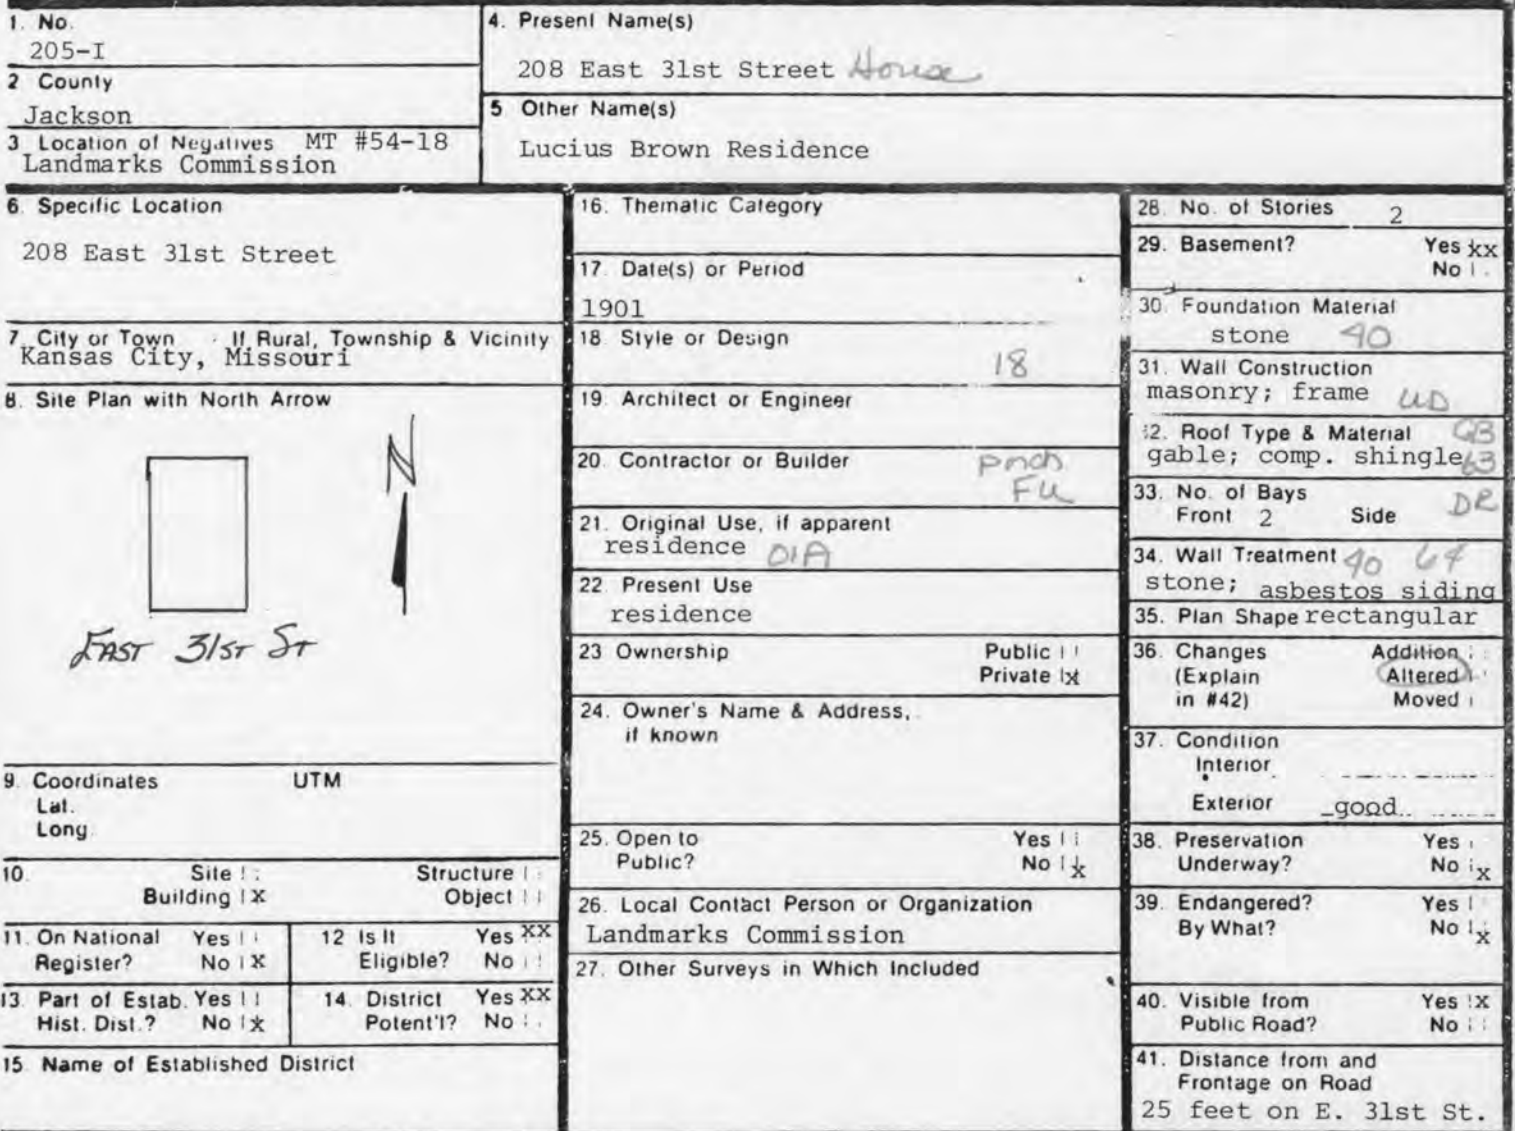 1. No.
205-I
2 County
Jackson
3 Location of Negatives MT #54-18
Landmarks Commission
4. Present Name(s)
208 East 31st Street House
5 Other Name(s)
Lucius Brown Residence
6. Specific Location
208 East 31st Street
7. City or Town If Rural, Township & Vicinity
Kansas City, Missouri
8. Site Plan with North Arrow
N
EAST 31ST ST
9. Coordinates UTM
Lat.
Long.
10. Site Structure
Building X Object
11. On National Yes
Register? No X
12 Is It Yes XX
Eligible? No
13. Part of Estab. Yes
Hist. Dist.? No X
14. District Yes XX
Potent'l? No
15. Name of Established District
16. Thematic Category
17. Date(s) or Period
1901
18. Style or Design
18
19. Architect or Engineer
20. Contractor or Builder
porch
FU
21. Original Use, if apparent
residence 01A
22. Present Use
residence
23 Ownership Public
Private X
24. Owner's Name & Address,
if known
25. Open to Yes
Public? No X
26. Local Contact Person or Organization
Landmarks Commission
27. Other Surveys in Which Included
28. No. of Stories 2
29. Basement? Yes XX
No
30. Foundation Material
stone 40
31. Wall Construction
masonry; frame UD
32. Roof Type & Material GB
gable; comp. shingle 63
33. No. of Bays DR
Front 2 Side
34. Wall Treatment 40 64
stone; asbestos siding
35. Plan Shape rectangular
36. Changes Addition
(Explain Altered
in #42) Moved
37. Condition
Interior
Exterior good
38. Preservation Yes
Underway? No X
39. Endangered? Yes
By What? No X
40. Visible from Yes X
Public Road? No
41. Distance from and
Frontage on Road
25 feet on E. 31st St.